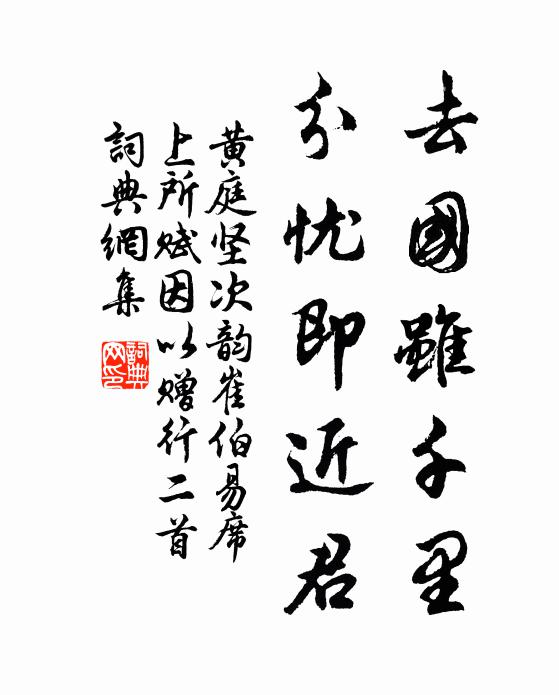 去國雖千里
分忧即近君
黄庭坚次韵崔伯易席
上所赋因以赠行二首
詞典網集
詞典网印